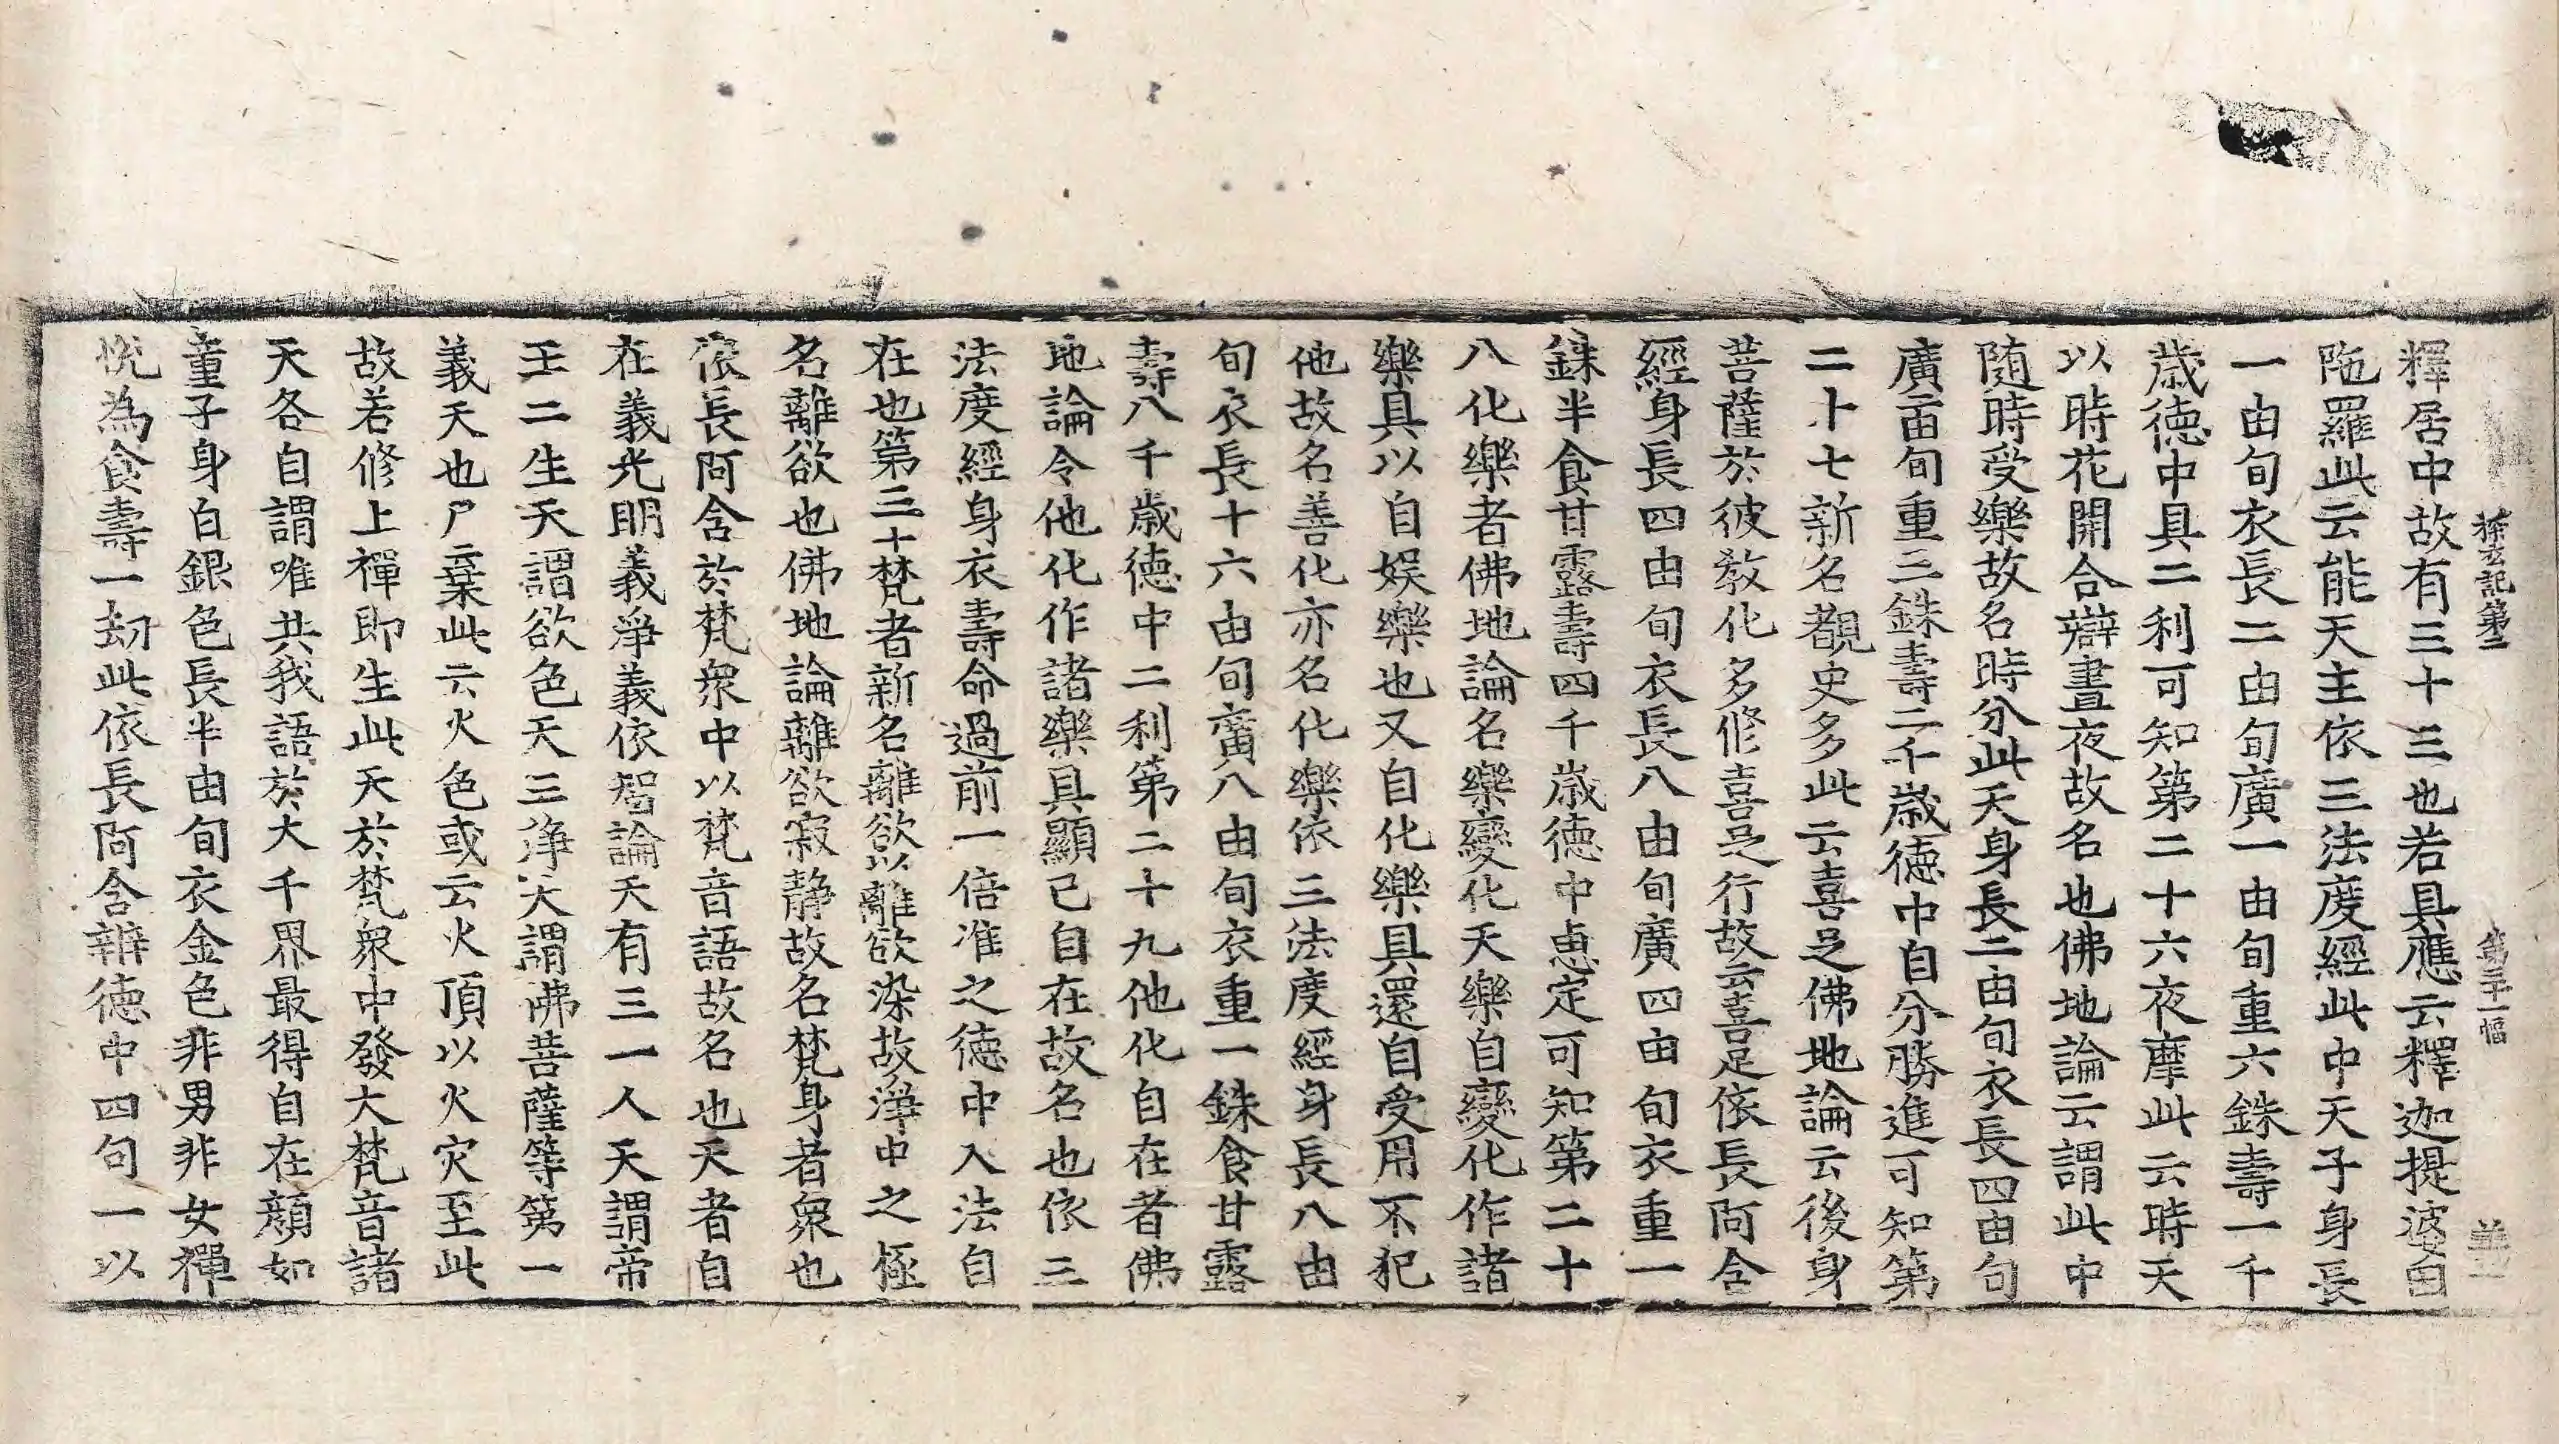 探玄記第二 第三十一幅
釋居中故有三十三也若具應云釋迦提婆因
陁羅此云能天主依三法度經此中天子身長
一由旬衣長二由旬廣一由旬重六銖壽一千
歲徳中具二利可知第二十六夜摩此云時天
以時花開合辯晝夜故名也佛地論云謂此中
随時受樂故名時分此天身長二由旬衣長四由旬
廣二由旬重三銖壽二千歲徳中自分勝進可知第
二十七新名覩史多此云喜足佛地論云後身
菩薩於彼敎化多修喜足行故云喜足依長阿含
經身長四由旬衣長八由旬廣四由旬衣重一
銖半食甘露壽四千歲徳中恵定可知第二十
八化樂者佛地論名樂變化天樂自變化作諸
樂具以自娛樂也又自化樂具還自受用不犯
他故名善化亦名化樂依三法度經身長八由
旬衣長十六由旬廣八由旬衣重一銖食甘露
壽八千歲徳中二利第二十九他化自在者佛
地論令他化作諸樂具顯己自在故名也依三
法度經身衣壽命過前一倍准之徳中入法自
在也第三十梵者新名離欲以離欲染故淨中之極
名離欲也佛地論離欲寂静故名梵身者衆也
依長阿含於梵衆中以梵音語故名也天者自
在義光明義淨義依智論天有三一人天謂帝
王二生天謂欲色天三淨天謂佛菩薩等第一
義天也尸棄此云火色或云火頂以火灾至此
故若修上禪即生此天於梵衆中發大梵音諸
天各自謂唯共我語於大千界最得自在顔如
童子身白銀色長半由旬衣金色非男非女禪
悅為食壽一劫此依長阿含辨徳中四句一以